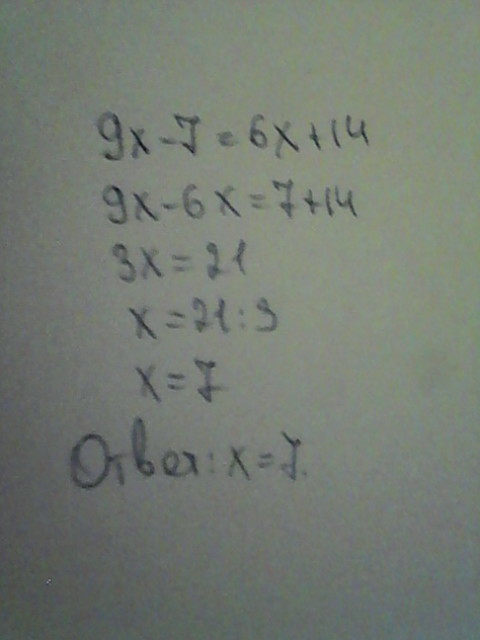 9x-7=6x+14
9x-6x=7+14
3x=21
x=21:3
x=7
Ответ: x=7.